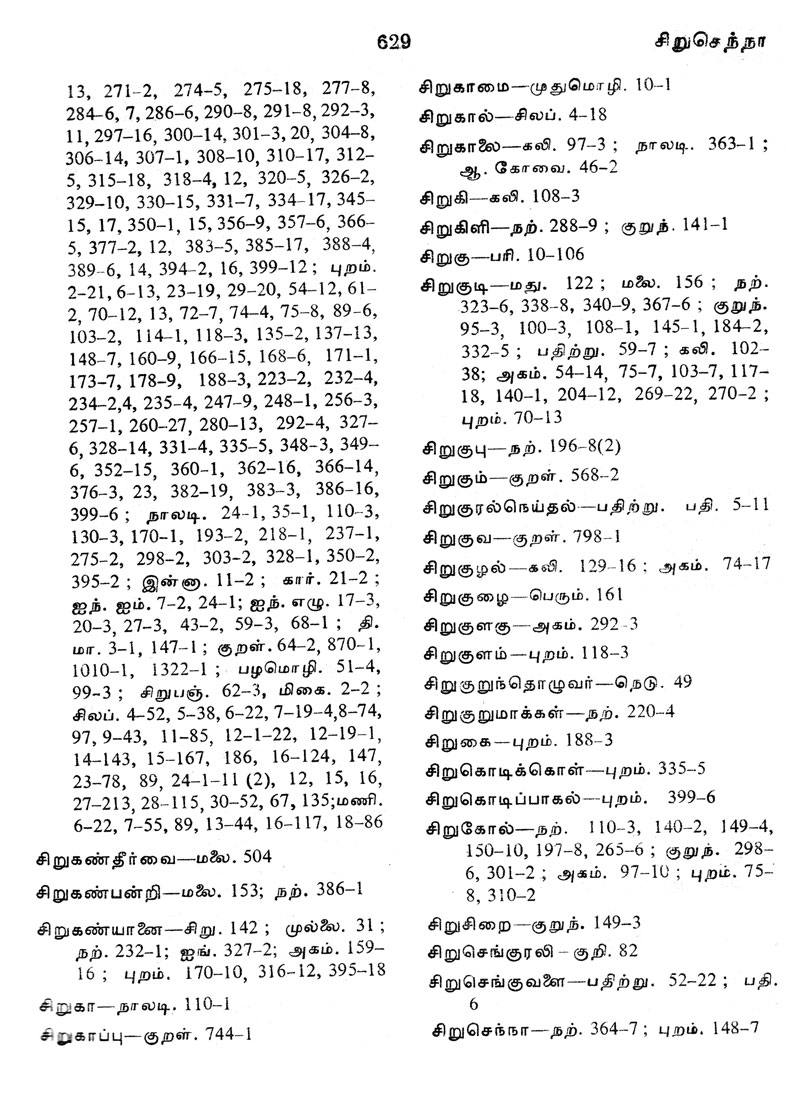 629
சிறுசெந்நா
13, 271–2, 274–5, 275–18, 277–8,
284–6, 7, 286–6, 290–8, 291–8, 292–3,
11, 297–16, 300–14, 301–3, 20, 304–8,
306–14, 307–1, 308–10, 310–17, 312–
5, 315–18, 318–4, 12, 320–5, 326–2,
329–10, 330–15, 331–7, 334–17, 345–
15, 17, 350–1, 15, 356–9, 357–6, 366–
5, 377–2, 12, 383–5, 385–17, 388–4,
389–6, 14, 394–2, 16, 399–12 ; புறம்.
2–21, 6–13, 23–19, 29–20, 54–12, 61–
2, 70–12, 13, 72–7, 74–4, 75–8, 89–6,
103–2, 114–1, 118–3, 135–2, 137–13,
148–7, 160–9, 166–15, 168–6, 171–1,
173–7, 178–9, 188–3, 223–2, 232–4,
234–2,4, 235–4, 247–9, 248–1, 256–3,
257–1, 260–27, 280–13, 292–4, 327–
6, 328–14, 331–4, 335–5, 348–3, 349–
6, 352–15, 360–1, 362–16, 366–14,
376–3, 23, 382–19, 383–3, 386–16,
399–6 ; நாலடி. 24–1, 35–1, 110–3,
130–3, 170–1, 193–2, 218–1, 237–1,
275–2, 298–2, 303–2, 328–1, 350–2,
395–2 ; இன்னா. 11–2 ; கார். 21–2 ;
ஐந். ஐம். 7–2, 24–1; ஐந். எழு. 17–3,
20–3, 27–3, 43–2, 59–3, 68–1 ; தி.
மா. 3–1, 147–1 ; குறள். 64–2, 870–1,
1010–1, 1322–1 ; பழமொழி. 51–4,
99–3 ; சிறுபஞ். 62–3, மிகை. 2–2 ;
சிலப். 4–52, 5–38, 6–22, 7–19–4,8–74,
97, 9–43, 11–85, 12–1–22, 12–19–1,
14–143, 15–167, 186, 16–124, 147,
23–78, 89, 24–1–11 (2), 12, 15, 16,
27–213, 28–115, 30–52, 67, 135;மணி.
6–22, 7–55, 89, 13–44, 16–117, 18–86
சிறுகண்தீர்வை—மலை. 504
சிறுகண்பன்றி—மலை. 153; நற். 386–1
சிறுகண்யானை—சிறு. 142 ; முல்லை. 31 ;
நற். 232–1; ஐங். 327–2; அகம். 159–
16 ; புறம். 170–10, 316–12, 395–18
சிறுகா—நாலடி. 110–1
சிறுகாப்பு—குறள். 744–1
சிறுகாமை—முதுமொழி. 10–1
சிறுகால்—சிலப். 4–18
சிறுகாலை—கலி. 97–3 ; நாலடி. 363–1 ;
ஆ. கோவை. 46–2
சிறுகி—கலி. 108–3
சிறுகிளி—நற். 288–9 ; குறுந். 141–1
சிறுகு—பரி. 10–106
சிறுகுடி—மது. 122 ; மலை. 156 ; நற்.
323–6, 338–8, 340–9, 367–6 ; குறுந்.
95–3, 100–3, 108–1, 145–1, 184–2,
332–5 ; பதிற்று. 59–7 ; கலி. 102–
38; அகம். 54–14, 75–7, 103–7, 117–
18, 140–1, 204–12, 269–22, 270–2 ;
புறம். 70–13
சிறுகுபு—நற். 196–8(2)
சிறுகும்—குறள். 568–2
சிறுகுரல்நெய்தல்—பதிற்று. பதி. 5–11
சிறுகுவ—குறள். 798–1
சிறுகுழல்—கலி. 129–16 ; அகம். 74–17
சிறுகுழை—பெரும். 161
சிறுகுளகு—அகம். 292–3
சிறுகுளம்—புறம். 118–3
சிறுகுறுந்தொழுவர்—நெடு. 49
சிறுகுறுமாக்கள்—நற். 220–4
சிறுகை—புறம். 188–3
சிறுகொடிக்கொள்—புறம். 335–5
சிறுகொடிப்பாகல்—புறம். 399–6
சிறுகோல்—நற். 110–3, 140–2, 149–4,
150–10, 197–8, 265–6 ; குறுந். 298–
6, 301–2 ; அகம். 97–10 ; புறம். 75–
8, 310–2
சிறுசிறை—குறுந். 149–3
சிறுசெங்குரலி – குறி. 82
சிறுசெங்குவளை—பதிற்று. 52–22 ; பதி.
6
சிறுசெந்நா—நற். 364–7 ; புறம். 148–7